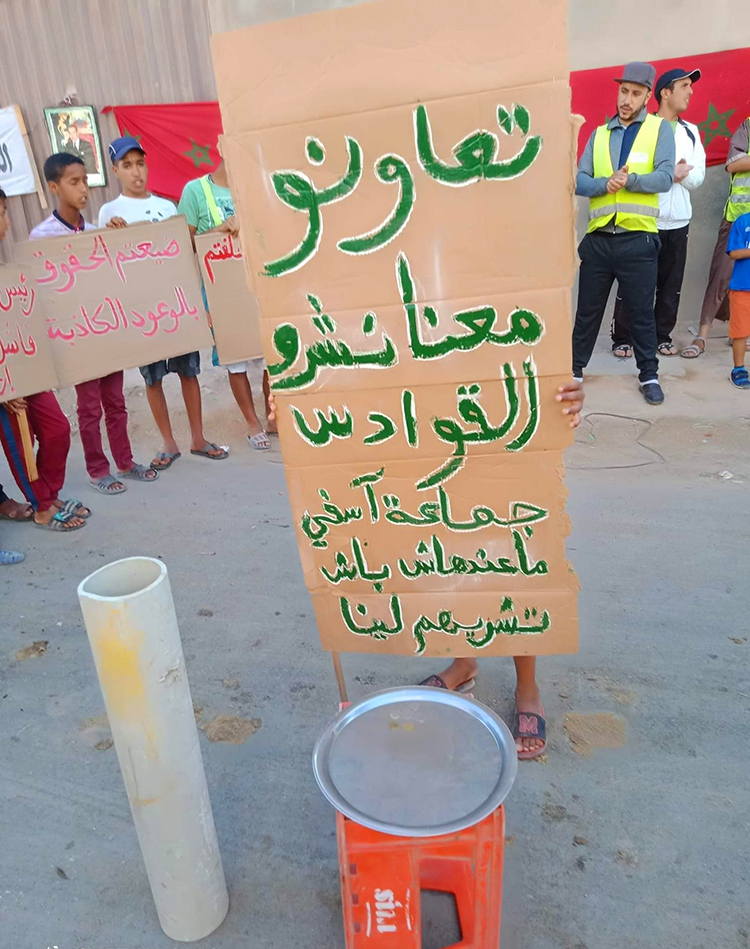 تعاونو
معنا نشرو
القوادس
جماعة آسفي
ماعندهاش باش
تشريهم لينا
ضيعتم الحقوق
بالوعود الكاذبة
رئيس
M